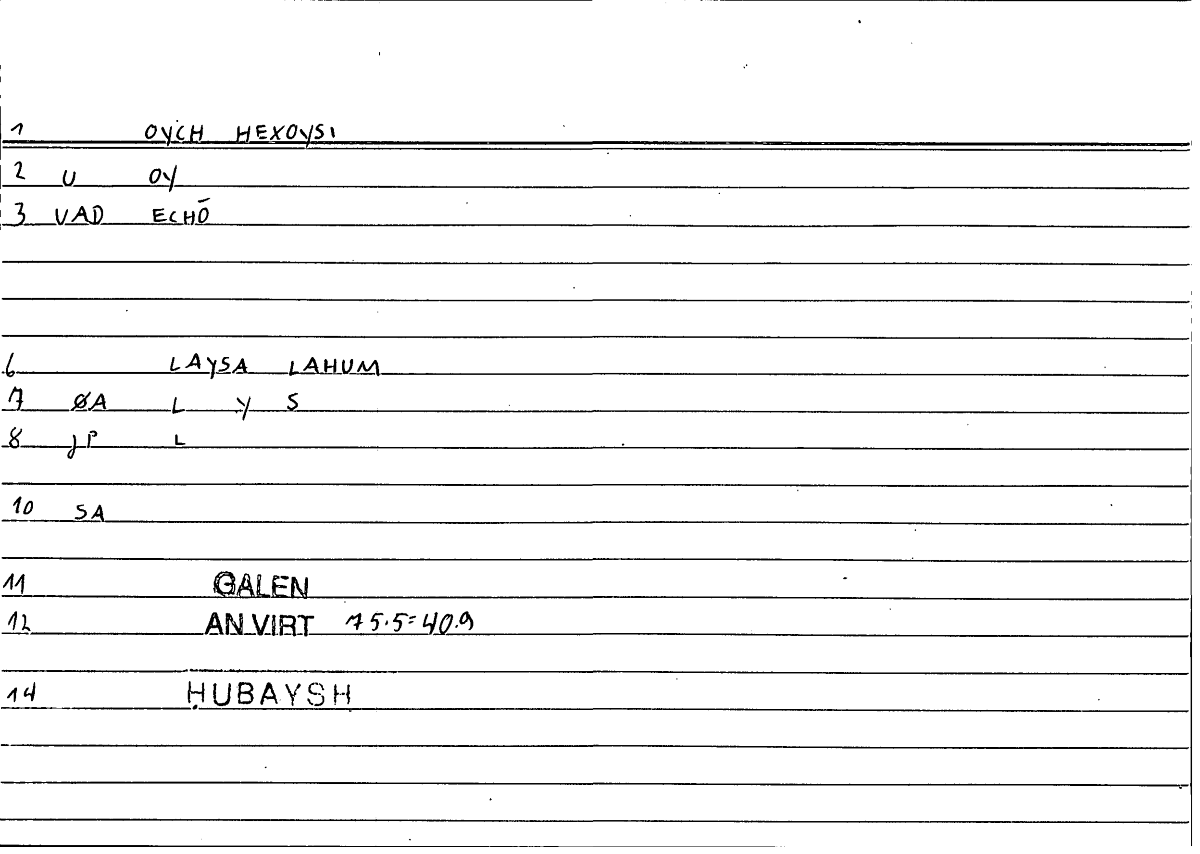 1 OYCH HEXOYSI
2 U OY
3 VAD ECHŌ
6 LAYSA LAHUM
7 ØA L Y S
8 JP L
10 SA
11 GALEN
12 AN VIRT 75.5=40.9
14 ḤUBAYSH